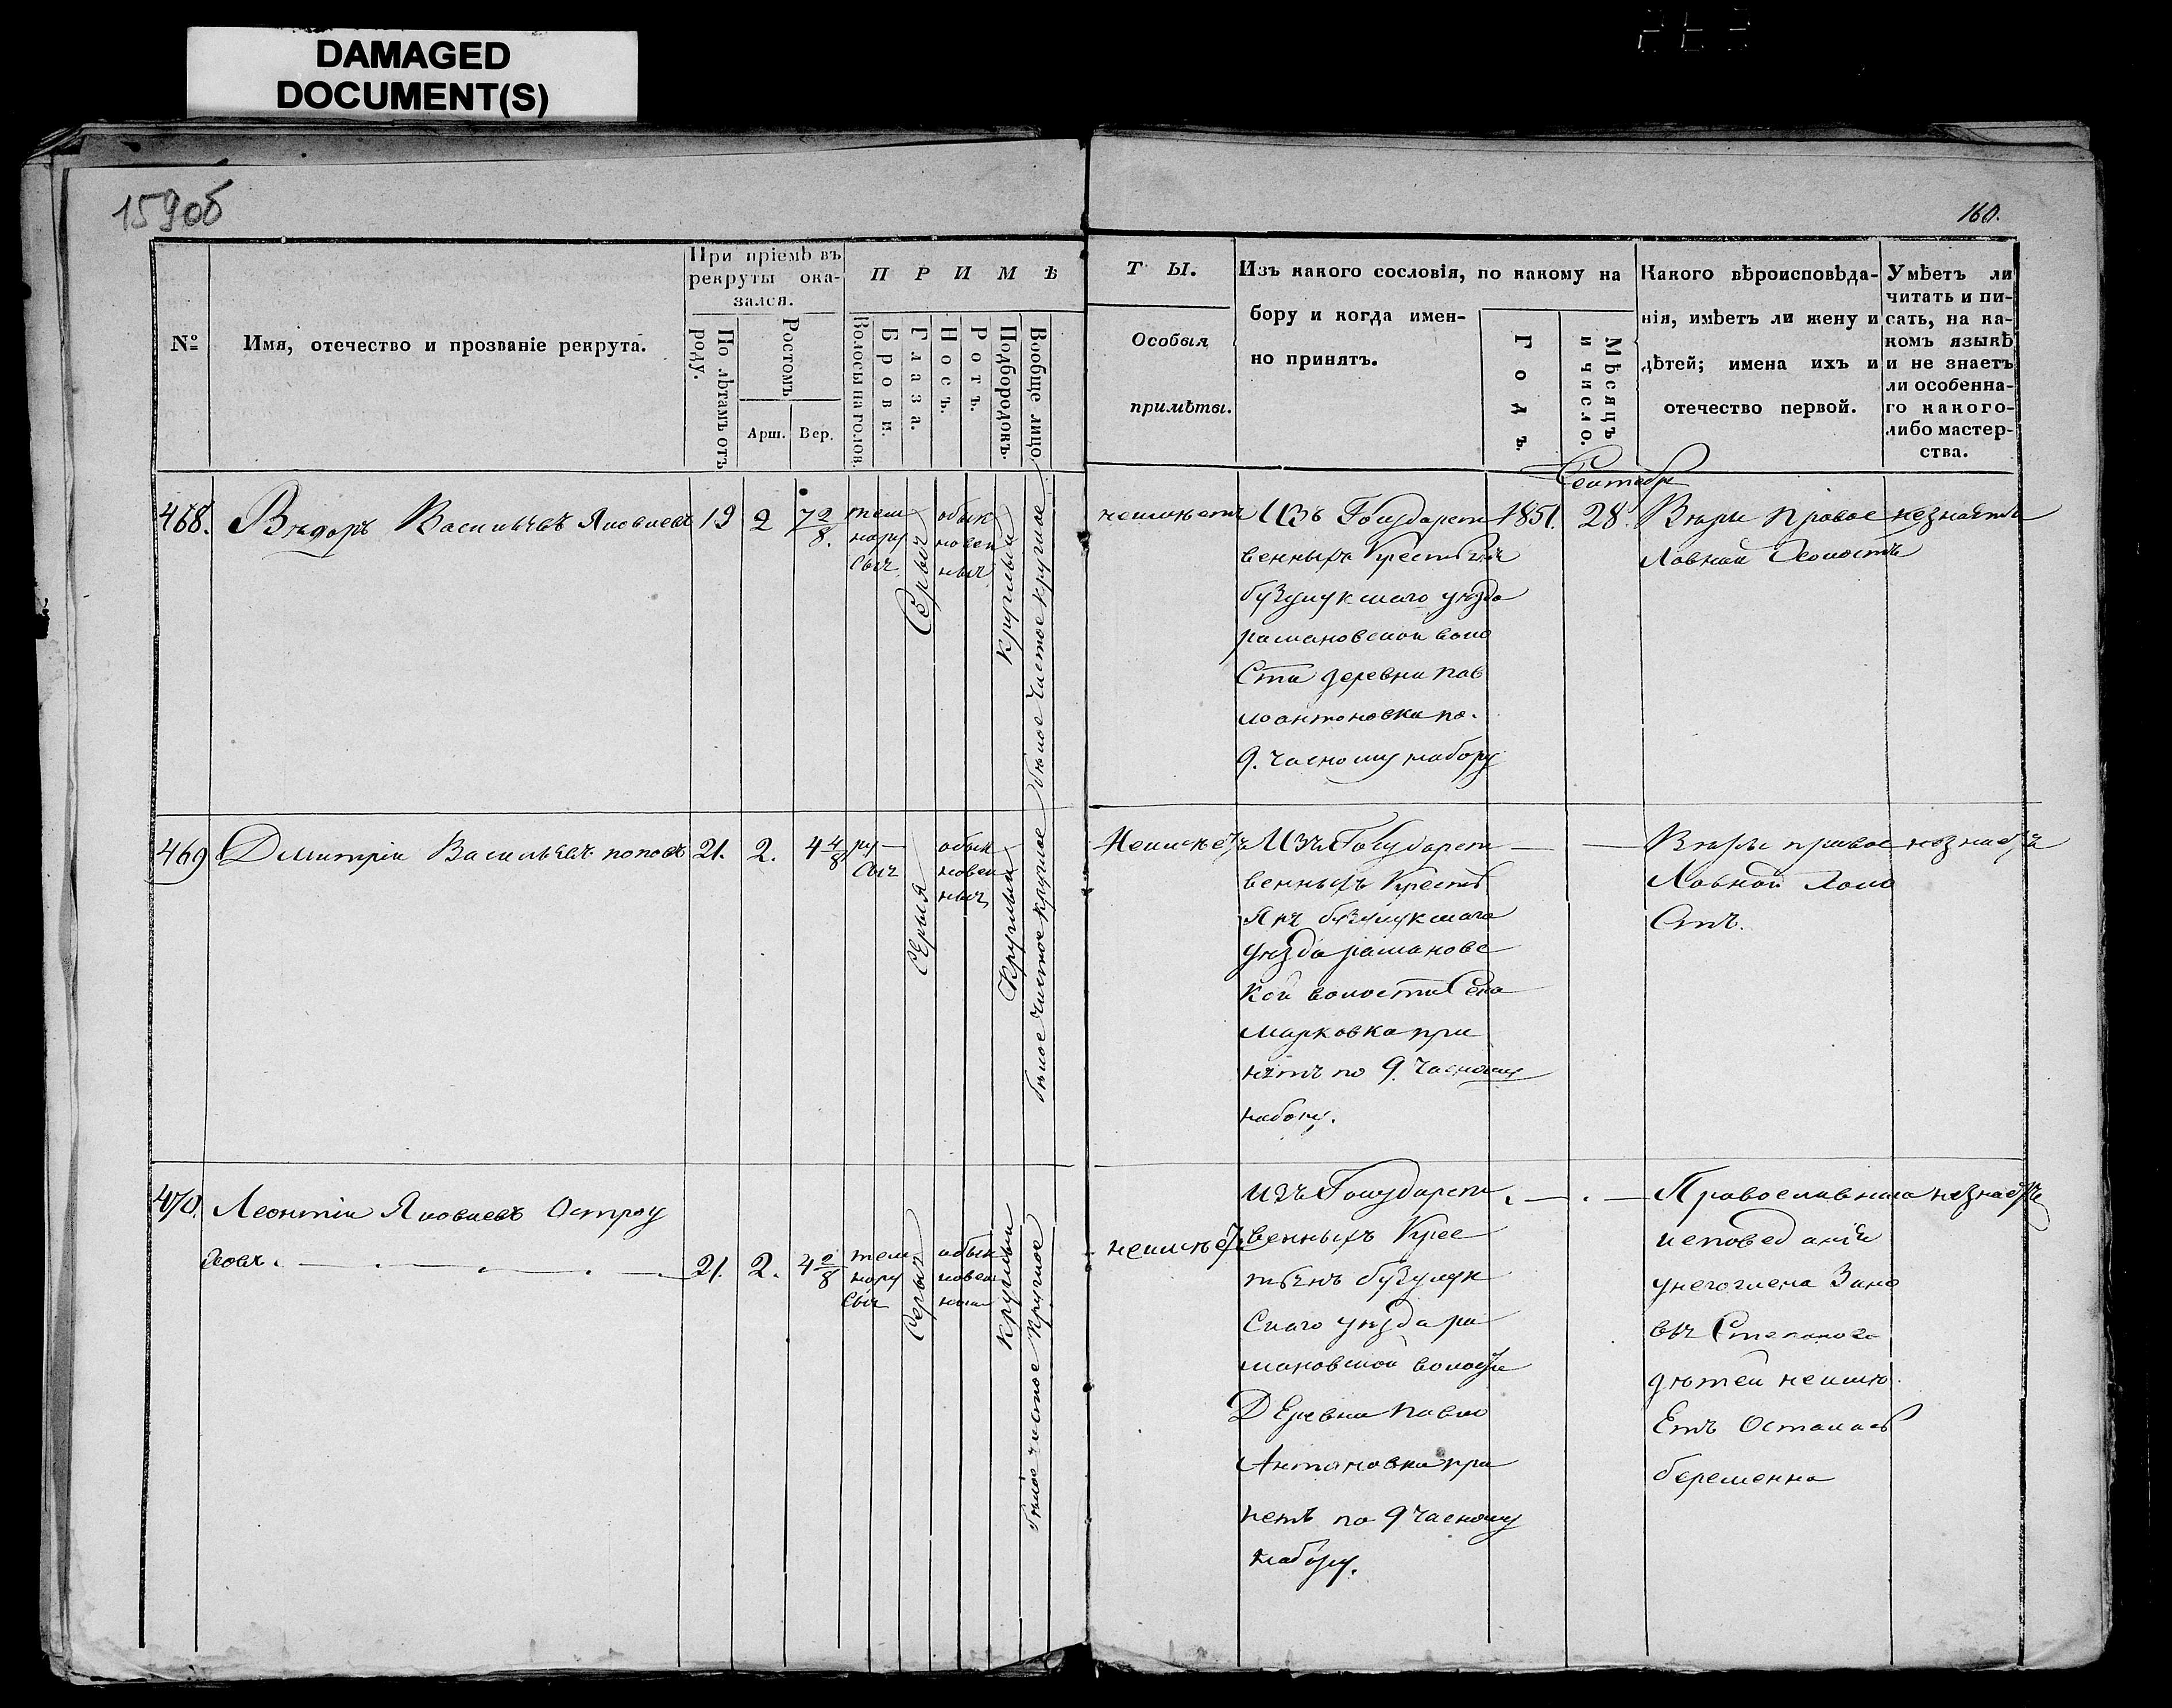 DAMAGED
DOCUMENT(S)
159об
160.
№
Имя, отечество и прозваніе рекрута.
При пріемѣ въ
рекруты ока-
зался.
По лѣтамъ отъ
роду.
Ростомъ
Арш.
Вер.
ПРИМѢ
Волосы на голов.
Брови.
Глаза.
Носъ.
Ротъ.
Подбородокъ.
Вообще лицо
ТЫ.
Особыя
примѣты.
Изъ какого сословія, по какому на
бору и когда имен-
но принятъ.
Годъ.
Мѣсяцъ
и число.
Какого вѣроисповѣда-
нія, имѣетъ ли жену и
дѣтей; имена ихъ и
отечество первой.
Умѣетъ ли
читать и пи-
сать, на ка-
комъ языкѣ
и не знаетъ
ли особенна-
го какого-
либо мастер-
ства.
468.
Васильевъ Яковлевъ
19
2
7 2/8.
тем
нору
сыя
Серыя
обык
новен
ныя
круглый
белое чистое круглое
неимѣетъ
Изъ Государст
венныхъ Крестьян
бузулукскаго уезда
рамановской воло
Сти деревни пав
лоантоновки по.
9. часному набору
1851.
Сентября
28.
Веры Правос
Лавной Холостъ
незнаетъ
469
Дмитрій Васильевъ поповъ
21.
2.
4 4/8
ру
сыя
СЕрыя
обык
новен
ныя
Круглый
белое чистое круглое
Неимеетъ
Изъ Государст
венныхъ Кресть
Янъ бузулукскаго
уезда рамановс
Кой волости Села
марковка при
нятъ по 9. часному
набору.
Веры правос
Лавной Холо
Стъ.
незнаетъ
470.
Леонтій Яковлевъ Остроу
ховъ.
21.
2.
4 2/8
тем
нору
сыя
Серыя
обык
новен
ныя
круглый
белое чистое круглое
неимеетъ
изъ Государст
венныхъ Крес
тьянъ бузулук
Скаго уезда ра
мановской волости
ДЕревни павло
Антоновки при
нетъ по 9 часному
набору.
Православнаго
исповеданія
унего жена Зино
вья Степанова
детей неиме
Етъ Осталась
беременна
незнаетъ